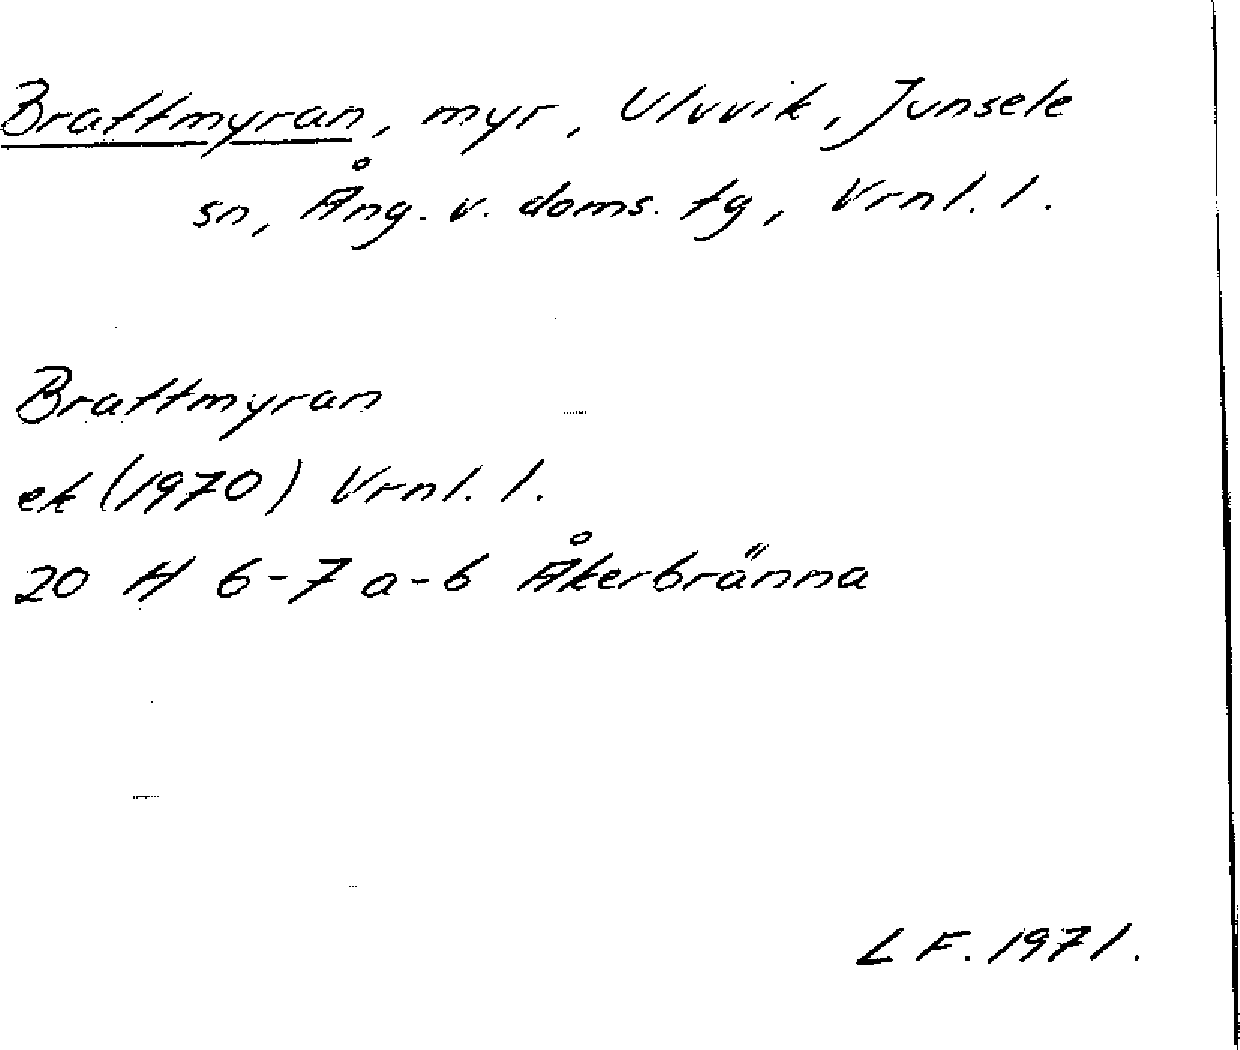 Brattmyran, myr, Ulvvik, Junsele
sn, Ång. v. doms. tg, Vrnl. l.
Brattmyran
ek (1970) Vrnl. l.
20 H 6-7 a-b Åkerbränna
L F. 1971.